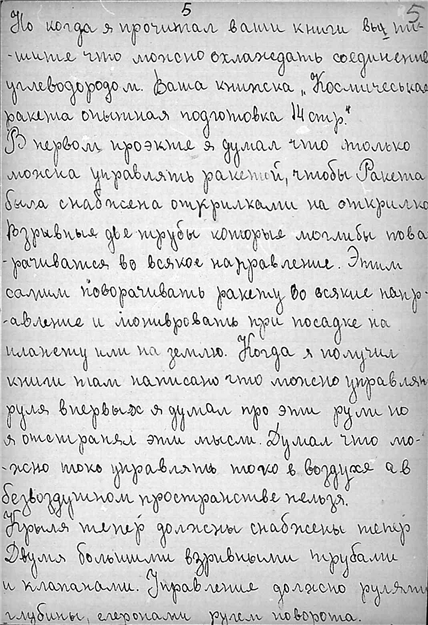 5
5
Но когда я прочитал ваши книги вы пи-
-шите что можно охлаждать соединение
углеводородом. Ваша книжка „Космическая
ракета опытная подготовка 14 стр."
В первом проэкте я думал что только
можна управлять ракетой, чтобы Ракета
была снабжена открилками на открилко
Взрывные две трубы которые моглибы пова
-рачиватся во всякое направление. Этим
самим поворачивать ракету во всякие напр-
-авление и при посадке на
планету или на землю. Когда я получил
книги там написано что можно управлят
руля впервых я думал про эти рули но
я отстранял эти мысли. Думал что мо-
-жно токо управлять токо в воздухе а в
безвоздушном пространстве нельзя.
Крылья тепер должны снабжены тепер
Двумя большими взривными трубами
и клапанами. Управление должно рулями
глубины, елеронами рулем поворота.